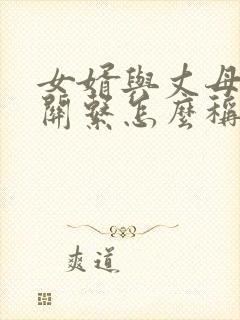 女婿與丈母
關繫怎麼稱
爽道